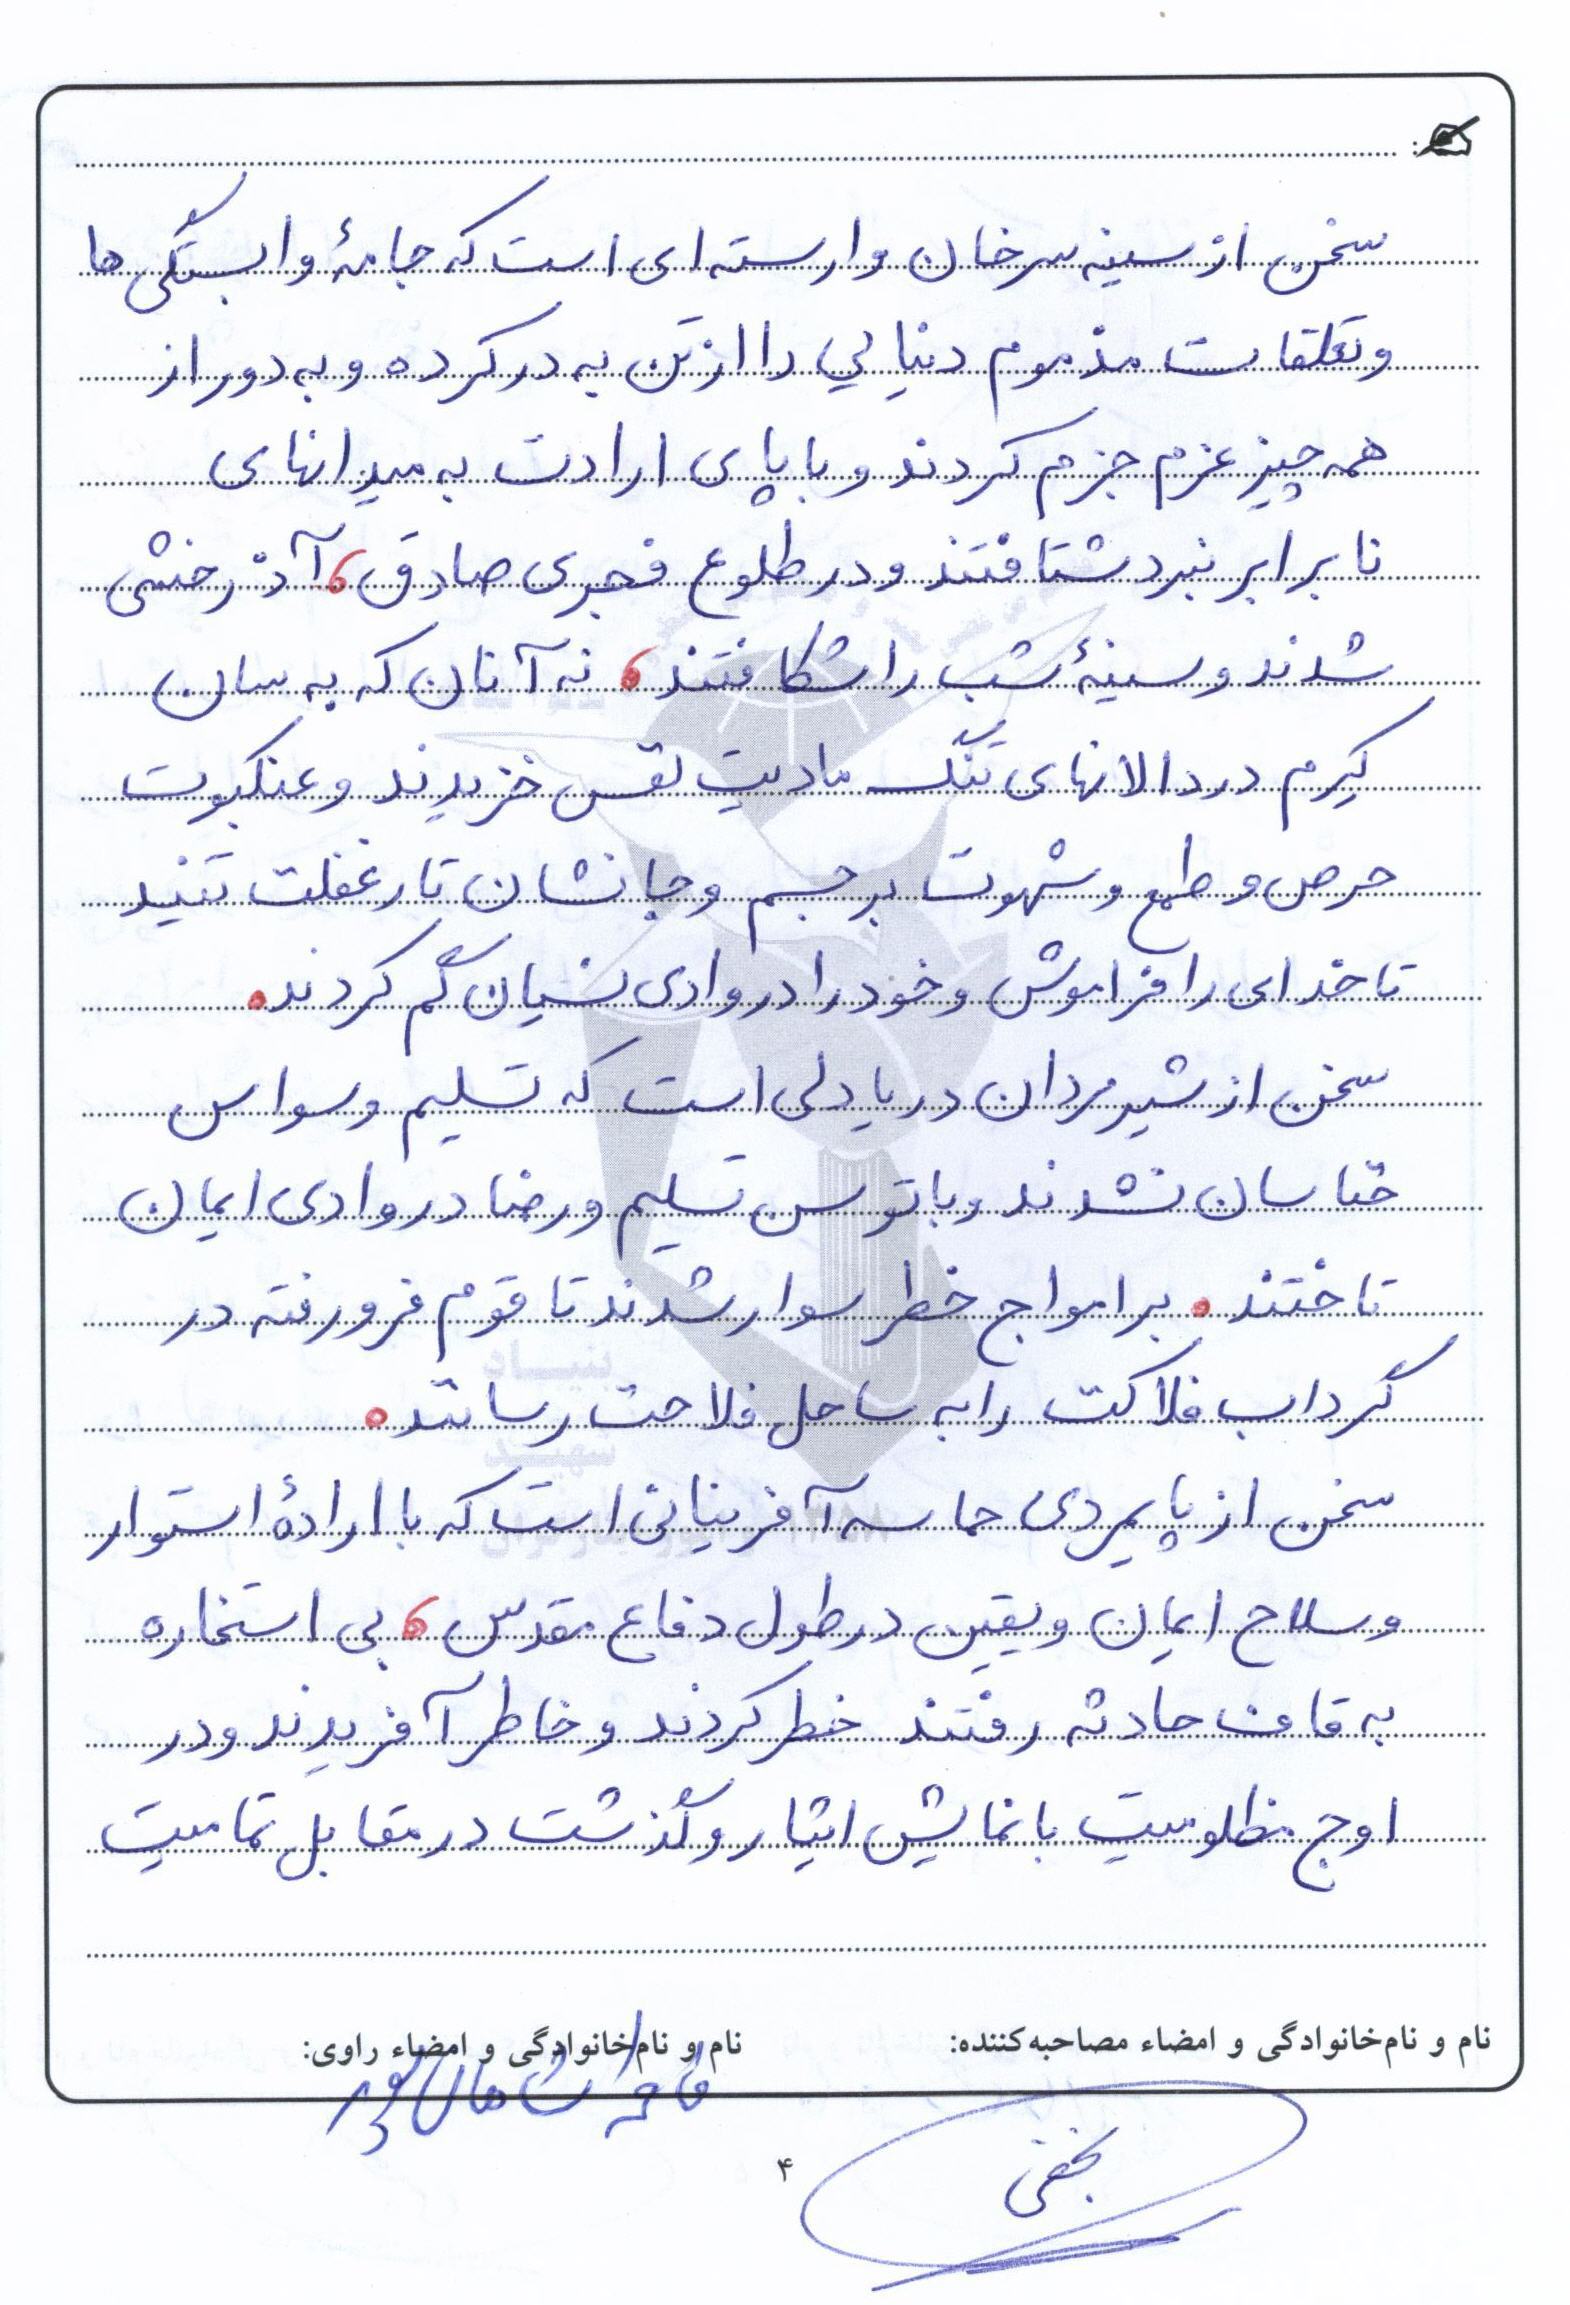 سخن از سینه سرخان وارسته ای است که جامهٔ وابستگی ها
و تعلقات مذموم دنیایی را از تن به در کرده و به دور از
همه چیز عزم جزم کردند و با پای ارادت به میدانهای
نابرابر نبرد شتافتند و در طلوع فجری صادق، آذرخشی
شدند و سینهٔ شب را شکافتند، نه آنان که به سان
کِرم در دالانهای تنگ مادیت نفس خزیدند و عنکبوت
حرص و طمع و شهوت بر جسم و جانشان تار غفلت تنید
تا خدای را فراموش و خود را در وادی نسیان گم کردند.
سخن از شیرمردان دریادلی است که تسلیم وسواس
خناسان نشدند و با توسن تسلیم و رضا در وادی ایمان
تاختند. بر امواج خطر سوار شدند تا قوم فرو رفته در
گرداب فلاکت را به ساحل فلاحت رسانند.
سخن از پایمردی حماسه آفرینانی است که با ارادهٔ استوار
و سلاح ایمان و یقین در طول دفاع مقدّس، بی استخاره
به قاف حادثه رفتند خطر کردند و خاطر آفریدند و در
اوج مظلومیت با نمایش ایثار و گذشت در مقابل تمامیت
نام و نام‌خانوادگی و امضاء مصاحبه‌کننده:
نام و نام‌خانوادگی و امضاء راوی:
نجفی
۴